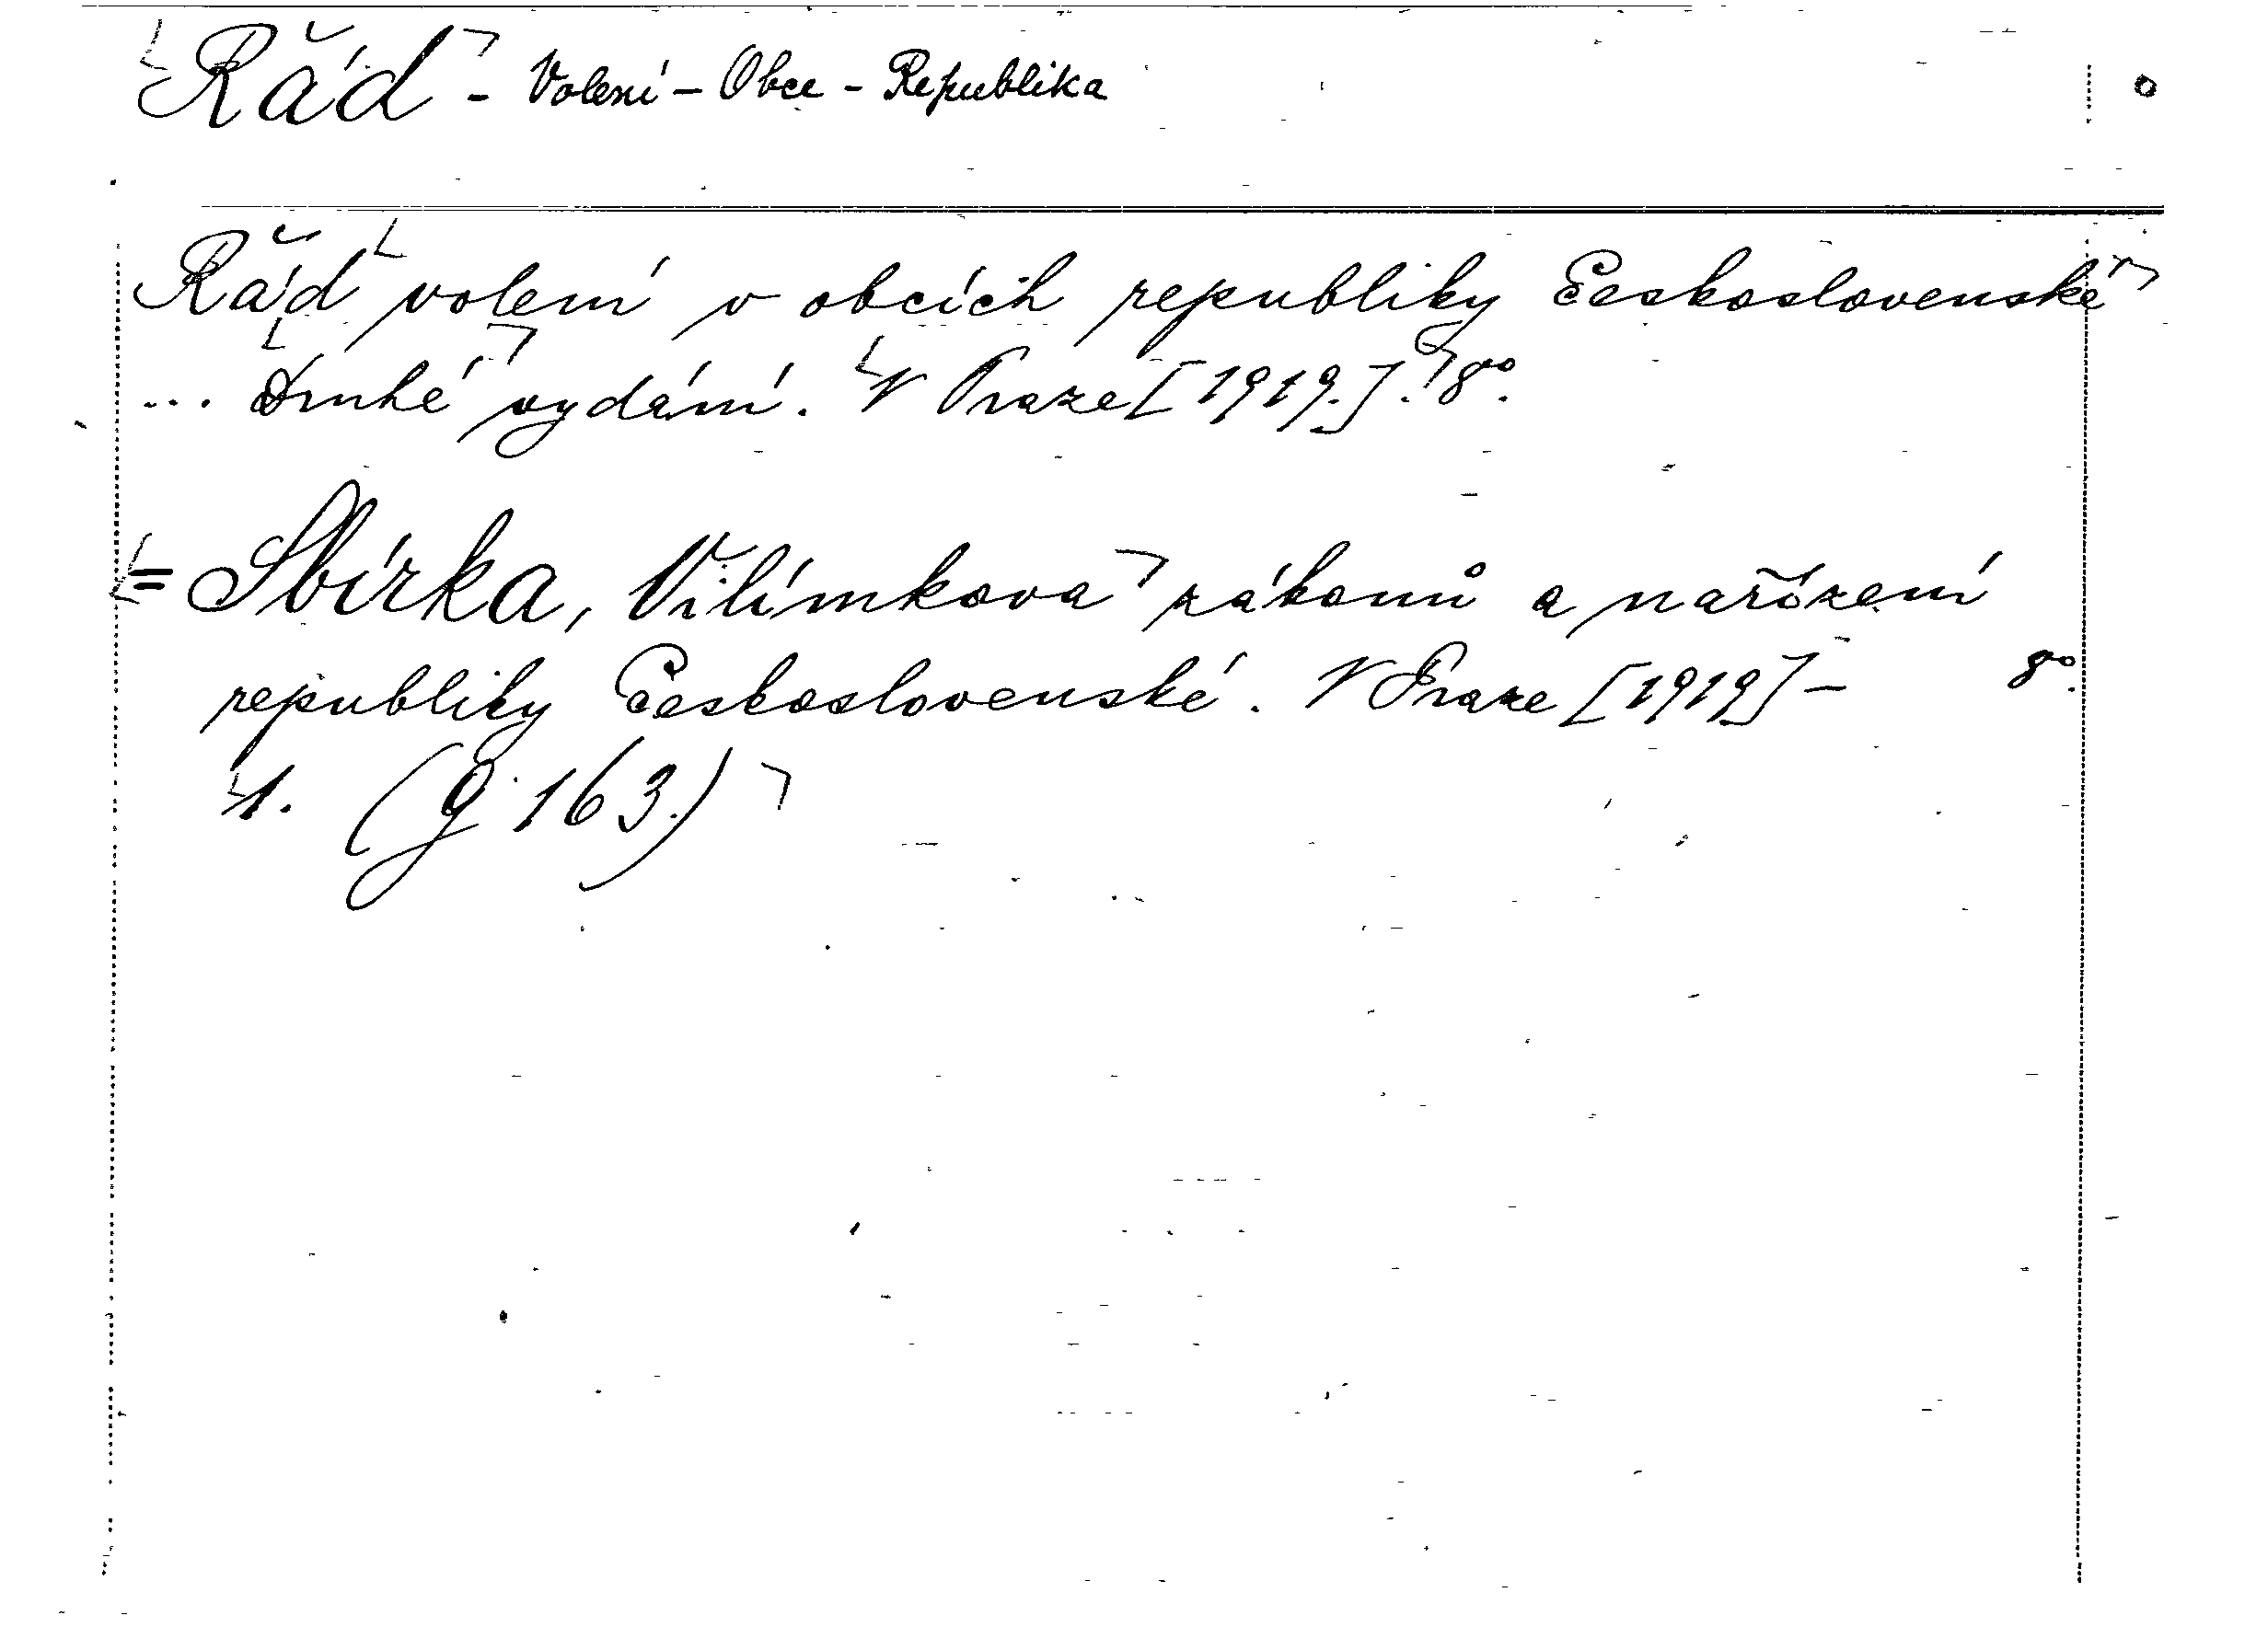 Řád - Volení - Obce - Republika
Řád volení v obcích republiky Československé
... Druhé vydání. V Praze [1919.]. 8º.
= Sbírka, Vilímkova zákonů a nařízení
republiky Československé. V Praze [1919] - 8º.
1. (g 163.)